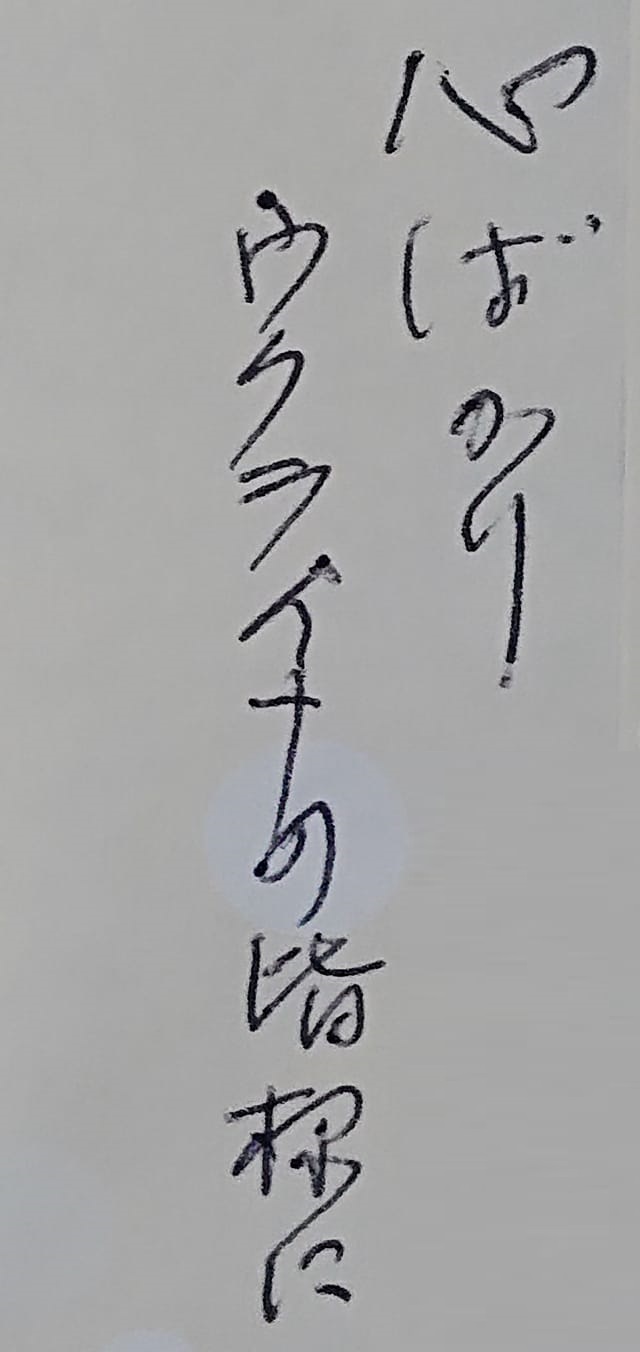 心ばかり
ウクライナの皆様に